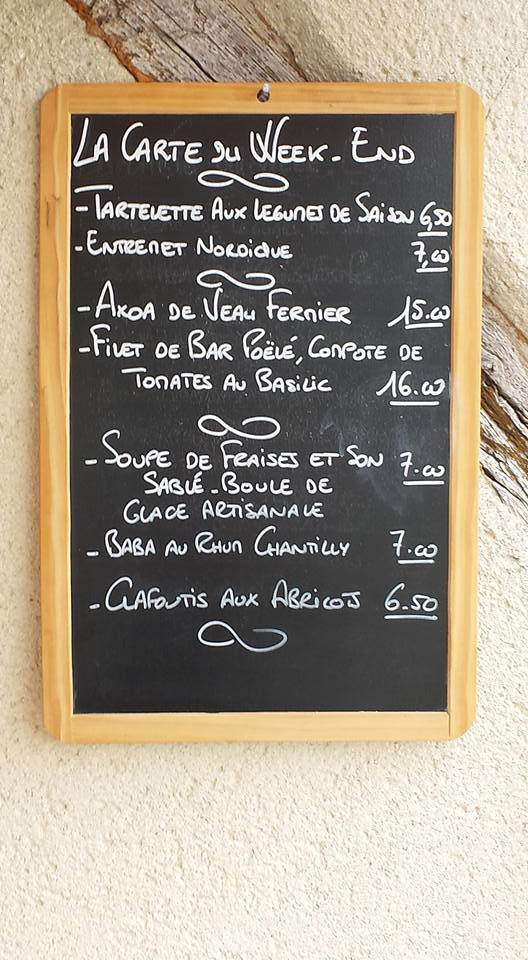 La Carte du Week-End
- Tartelette Aux Legumes de Saison 6,50
- Entremet Nordique 7,00
- Axoa de Veau Fermier 15.00
- Filet de Bar Poëlé, Compote de
Tomates au Basilic 16.00
- Soupe de Fraises et Son 7.00
Sablé - Boule de
Glace Artisanale
- Baba au Rhum Chantilly 7.00
- Clafoutis aux Abricots 6.50